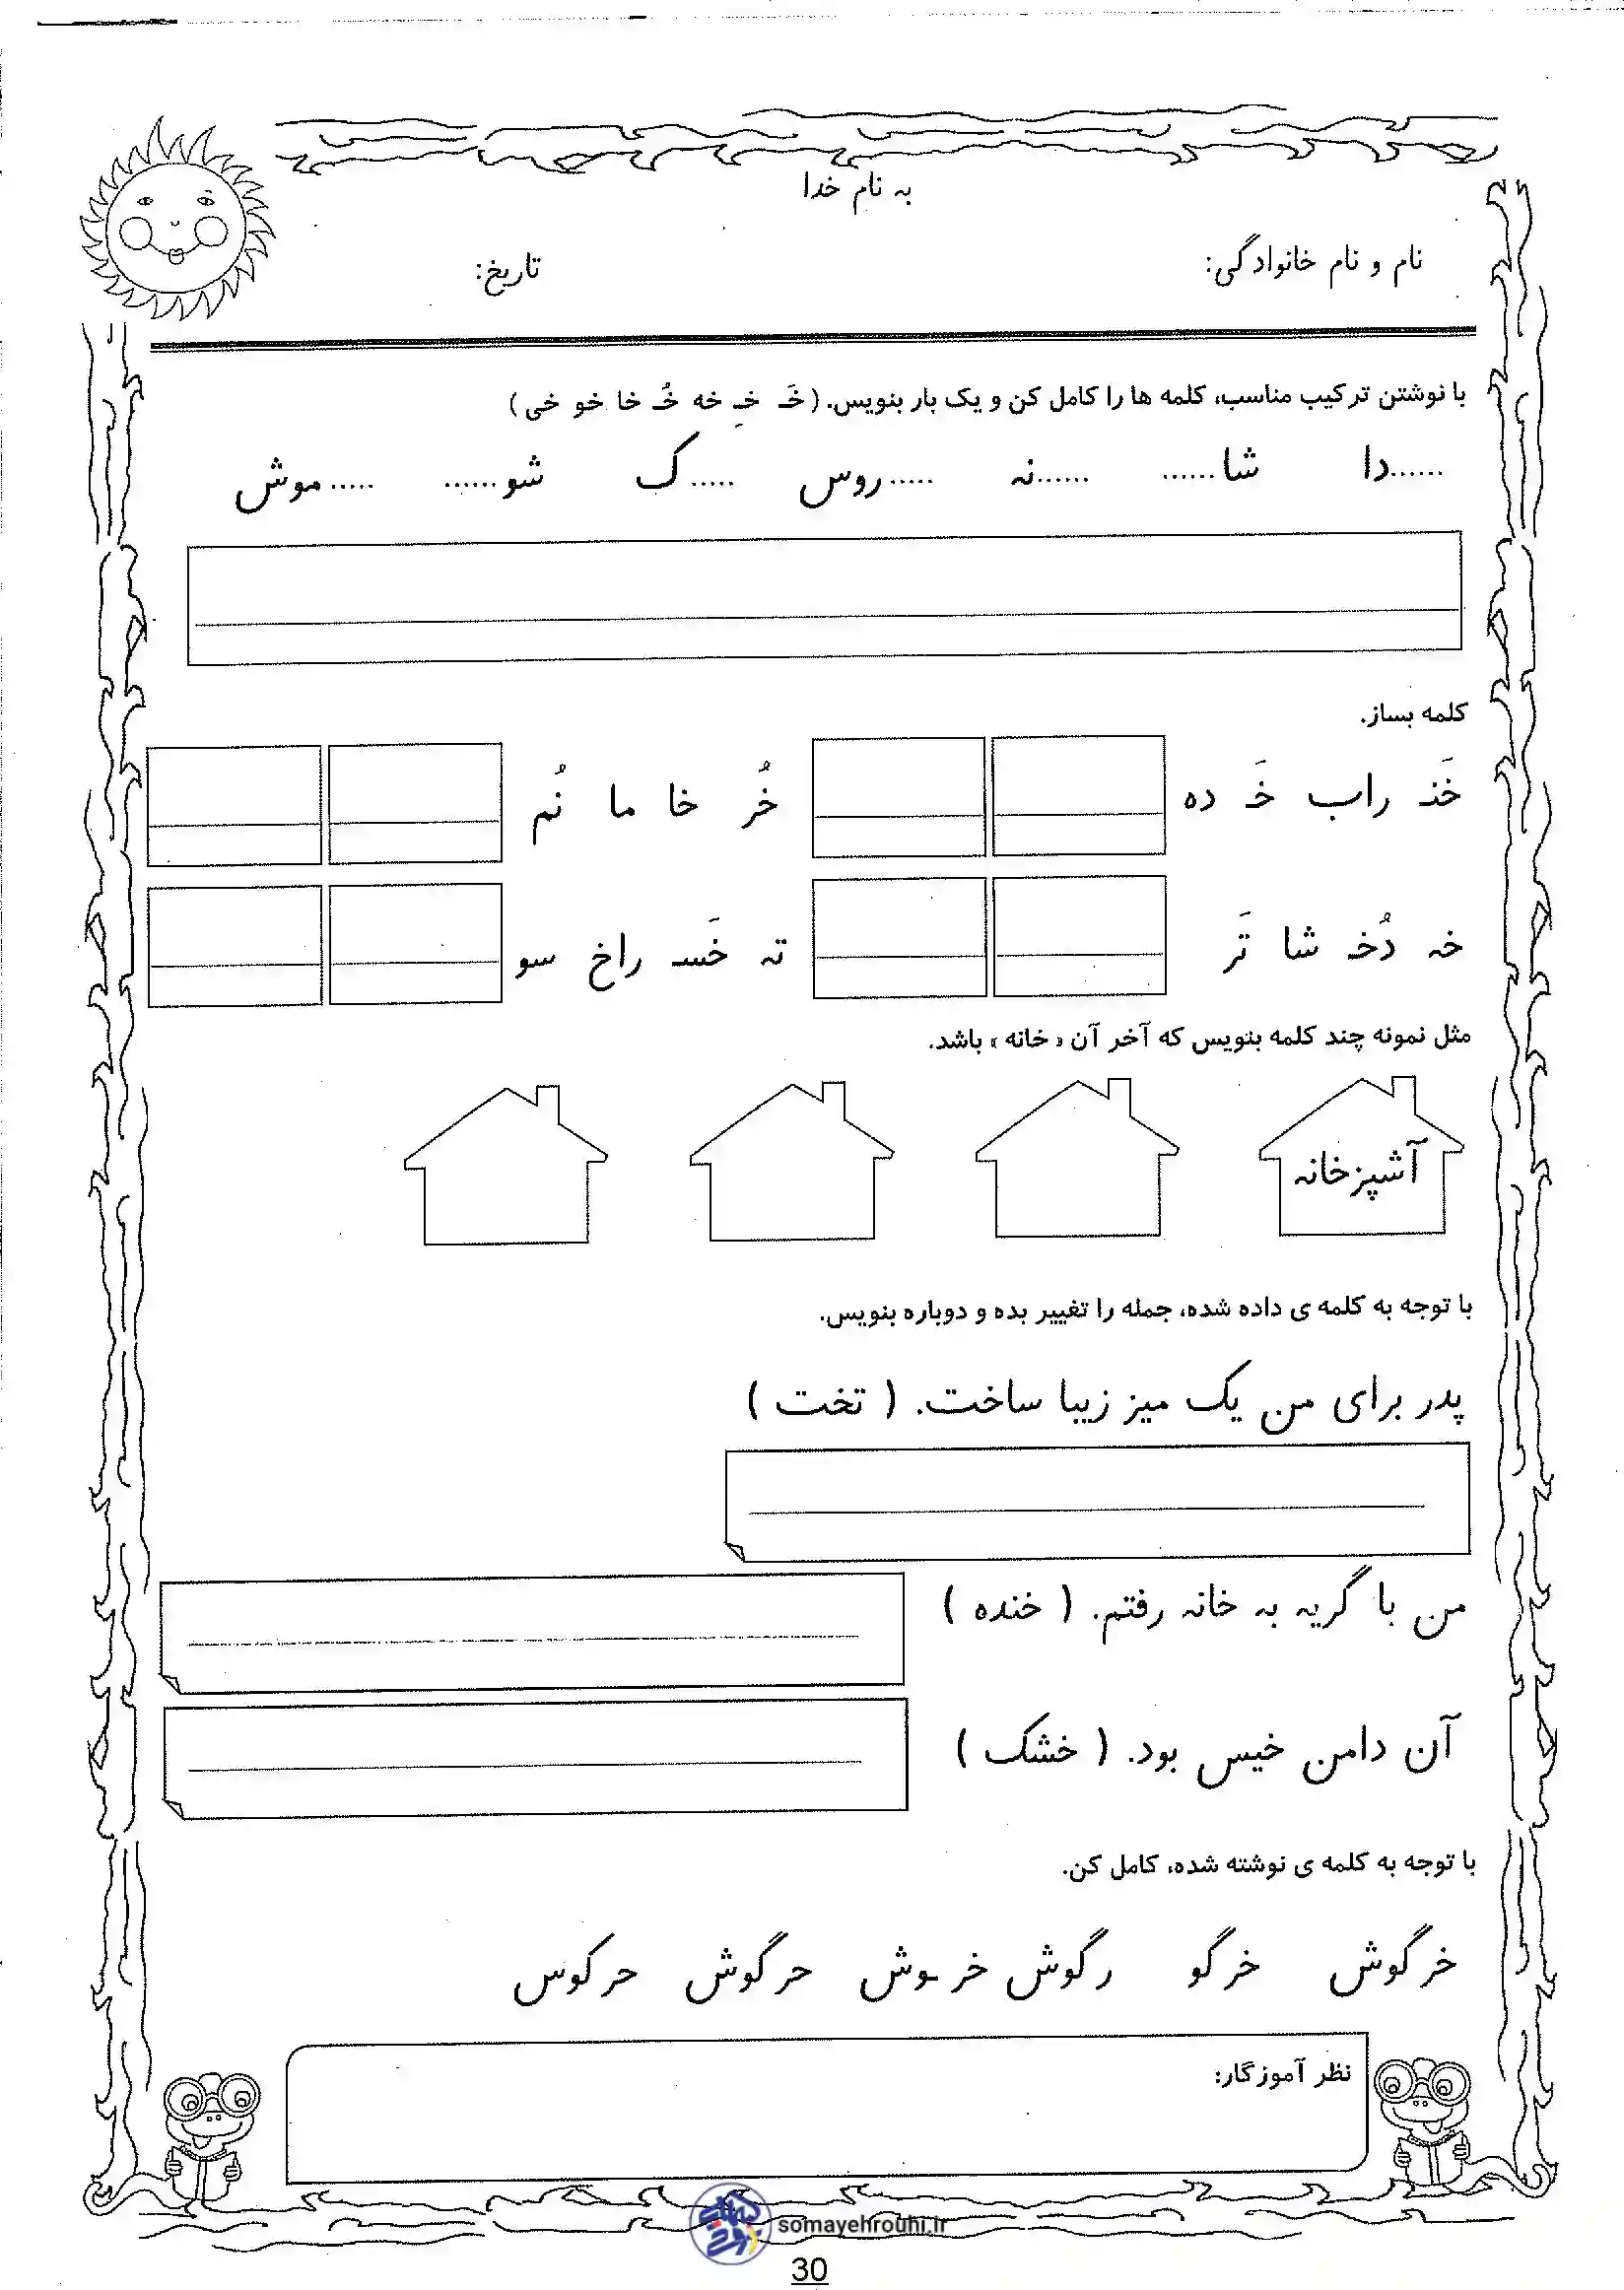 به نام خدا
نام و نام خانوادگی: تاریخ:
با نوشتن ترکیب مناسب، کلمه ها را کامل کن و یک بار بنویس. ( خَـ خـِ خه خُـ خا خو خی )
......دا شا...... ......نه .....روس .....ک شو...... .....موش
کلمه بساز.
خَنـ راب خَـ ده خُر خا ما نُم
خه دُخـ شا تَر ته خَسـ راخ سو
مثل نمونه چند کلمه بنویس که آخر آن « خانه » باشد.
آشپزخانه
با توجه به کلمه ی داده شده، جمله را تغییر بده و دوباره بنویس.
پدر برای من یک میز زیبا ساخت. ( تخت )
من با گریه به خانه رفتم. ( خنده )
آن دامن خیس بود. ( خشک )
با توجه به کلمه ی نوشته شده، کامل کن.
خرگوش خرگو رگوش خر ـوش حرگوش حرکوس
نظر آموزگار:
somayehrouhi.ir
30